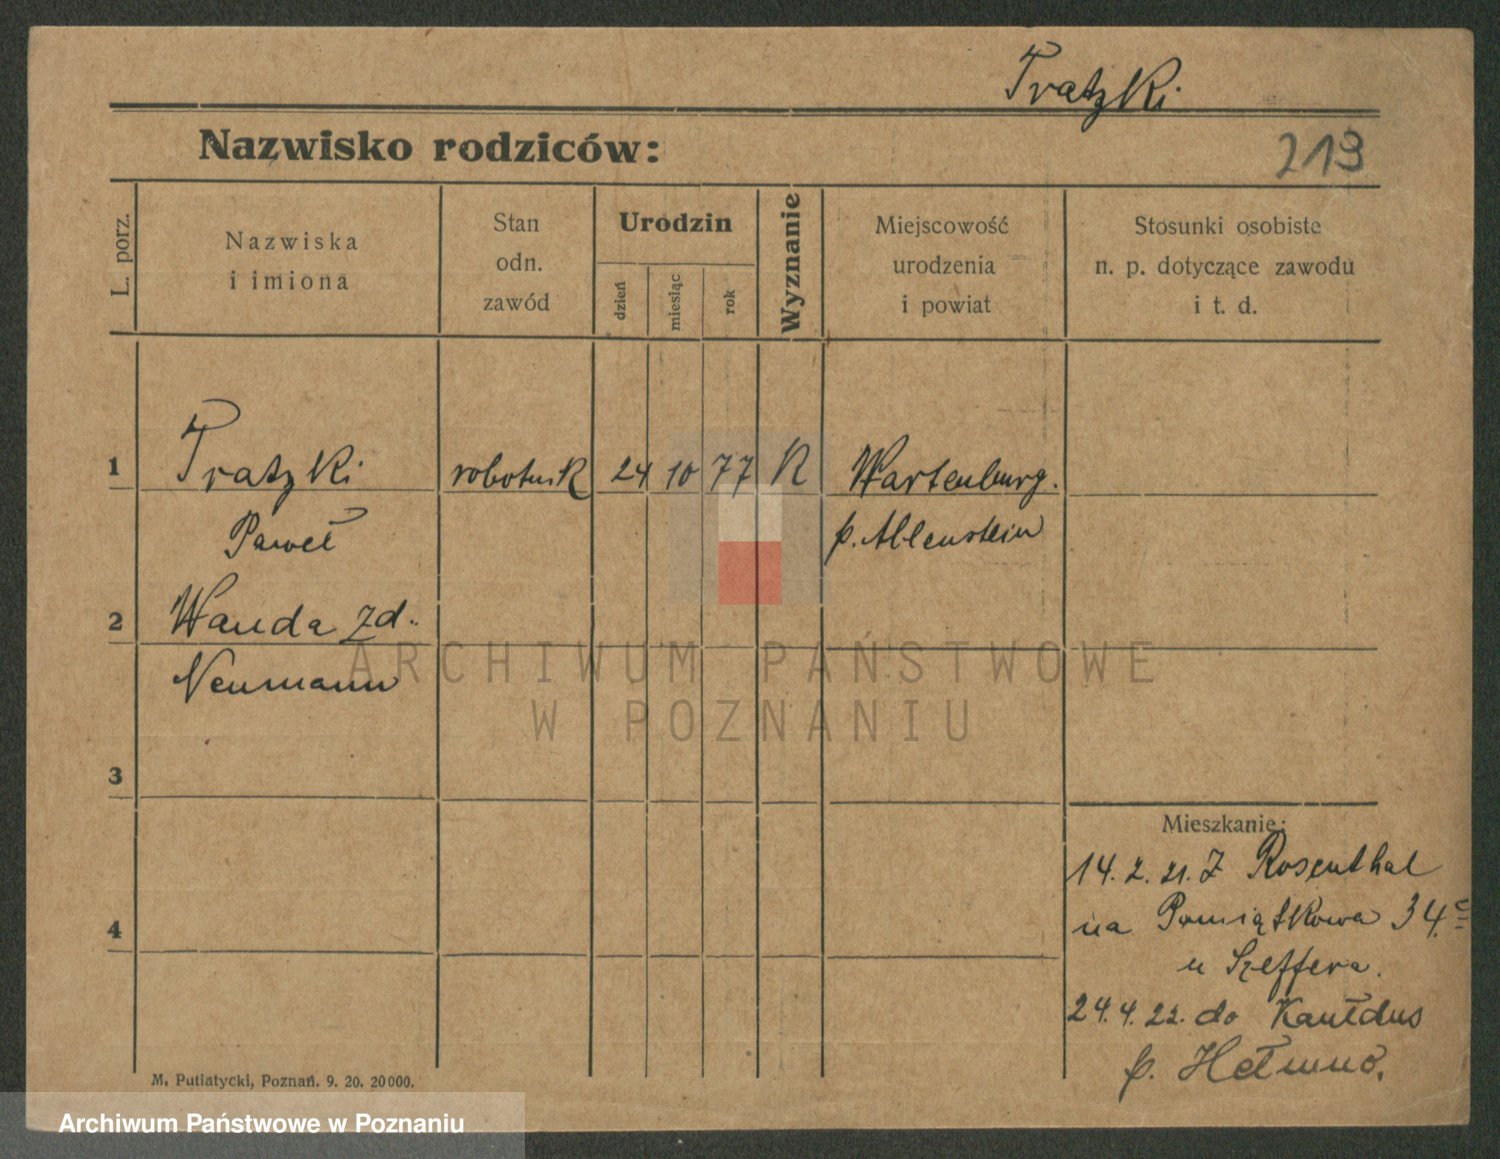 Tratzki
Nazwisko rodziców:
213
L. porz.
Nazwiska
i imiona
Stan
odn.
zawód
Urodzin
dzień
miesiąc
rok
Wyznanie
Miejscowość
urodzenia
i powiat
Stosunki osobiste
n. p. dotyczące zawodu
i t. d.
1 Tratzki robotnik 24 10 77 K Wartenburg.
Paweł p. Allenstein
2 Wanda zd.
Neumann
ARCHIWUM PAŃSTWOWE
W POZNANIU
3
Mieszkanie:
14. 2. 21. Z Rosenthal
4
na Pamiątkowa 34.c
u Szeffera.
24. 4. 22. do Kałdus
p. Hełmno.
M. Putiatycki, Poznań. 9. 20. 20000.
Archiwum Państwowe w Poznaniu